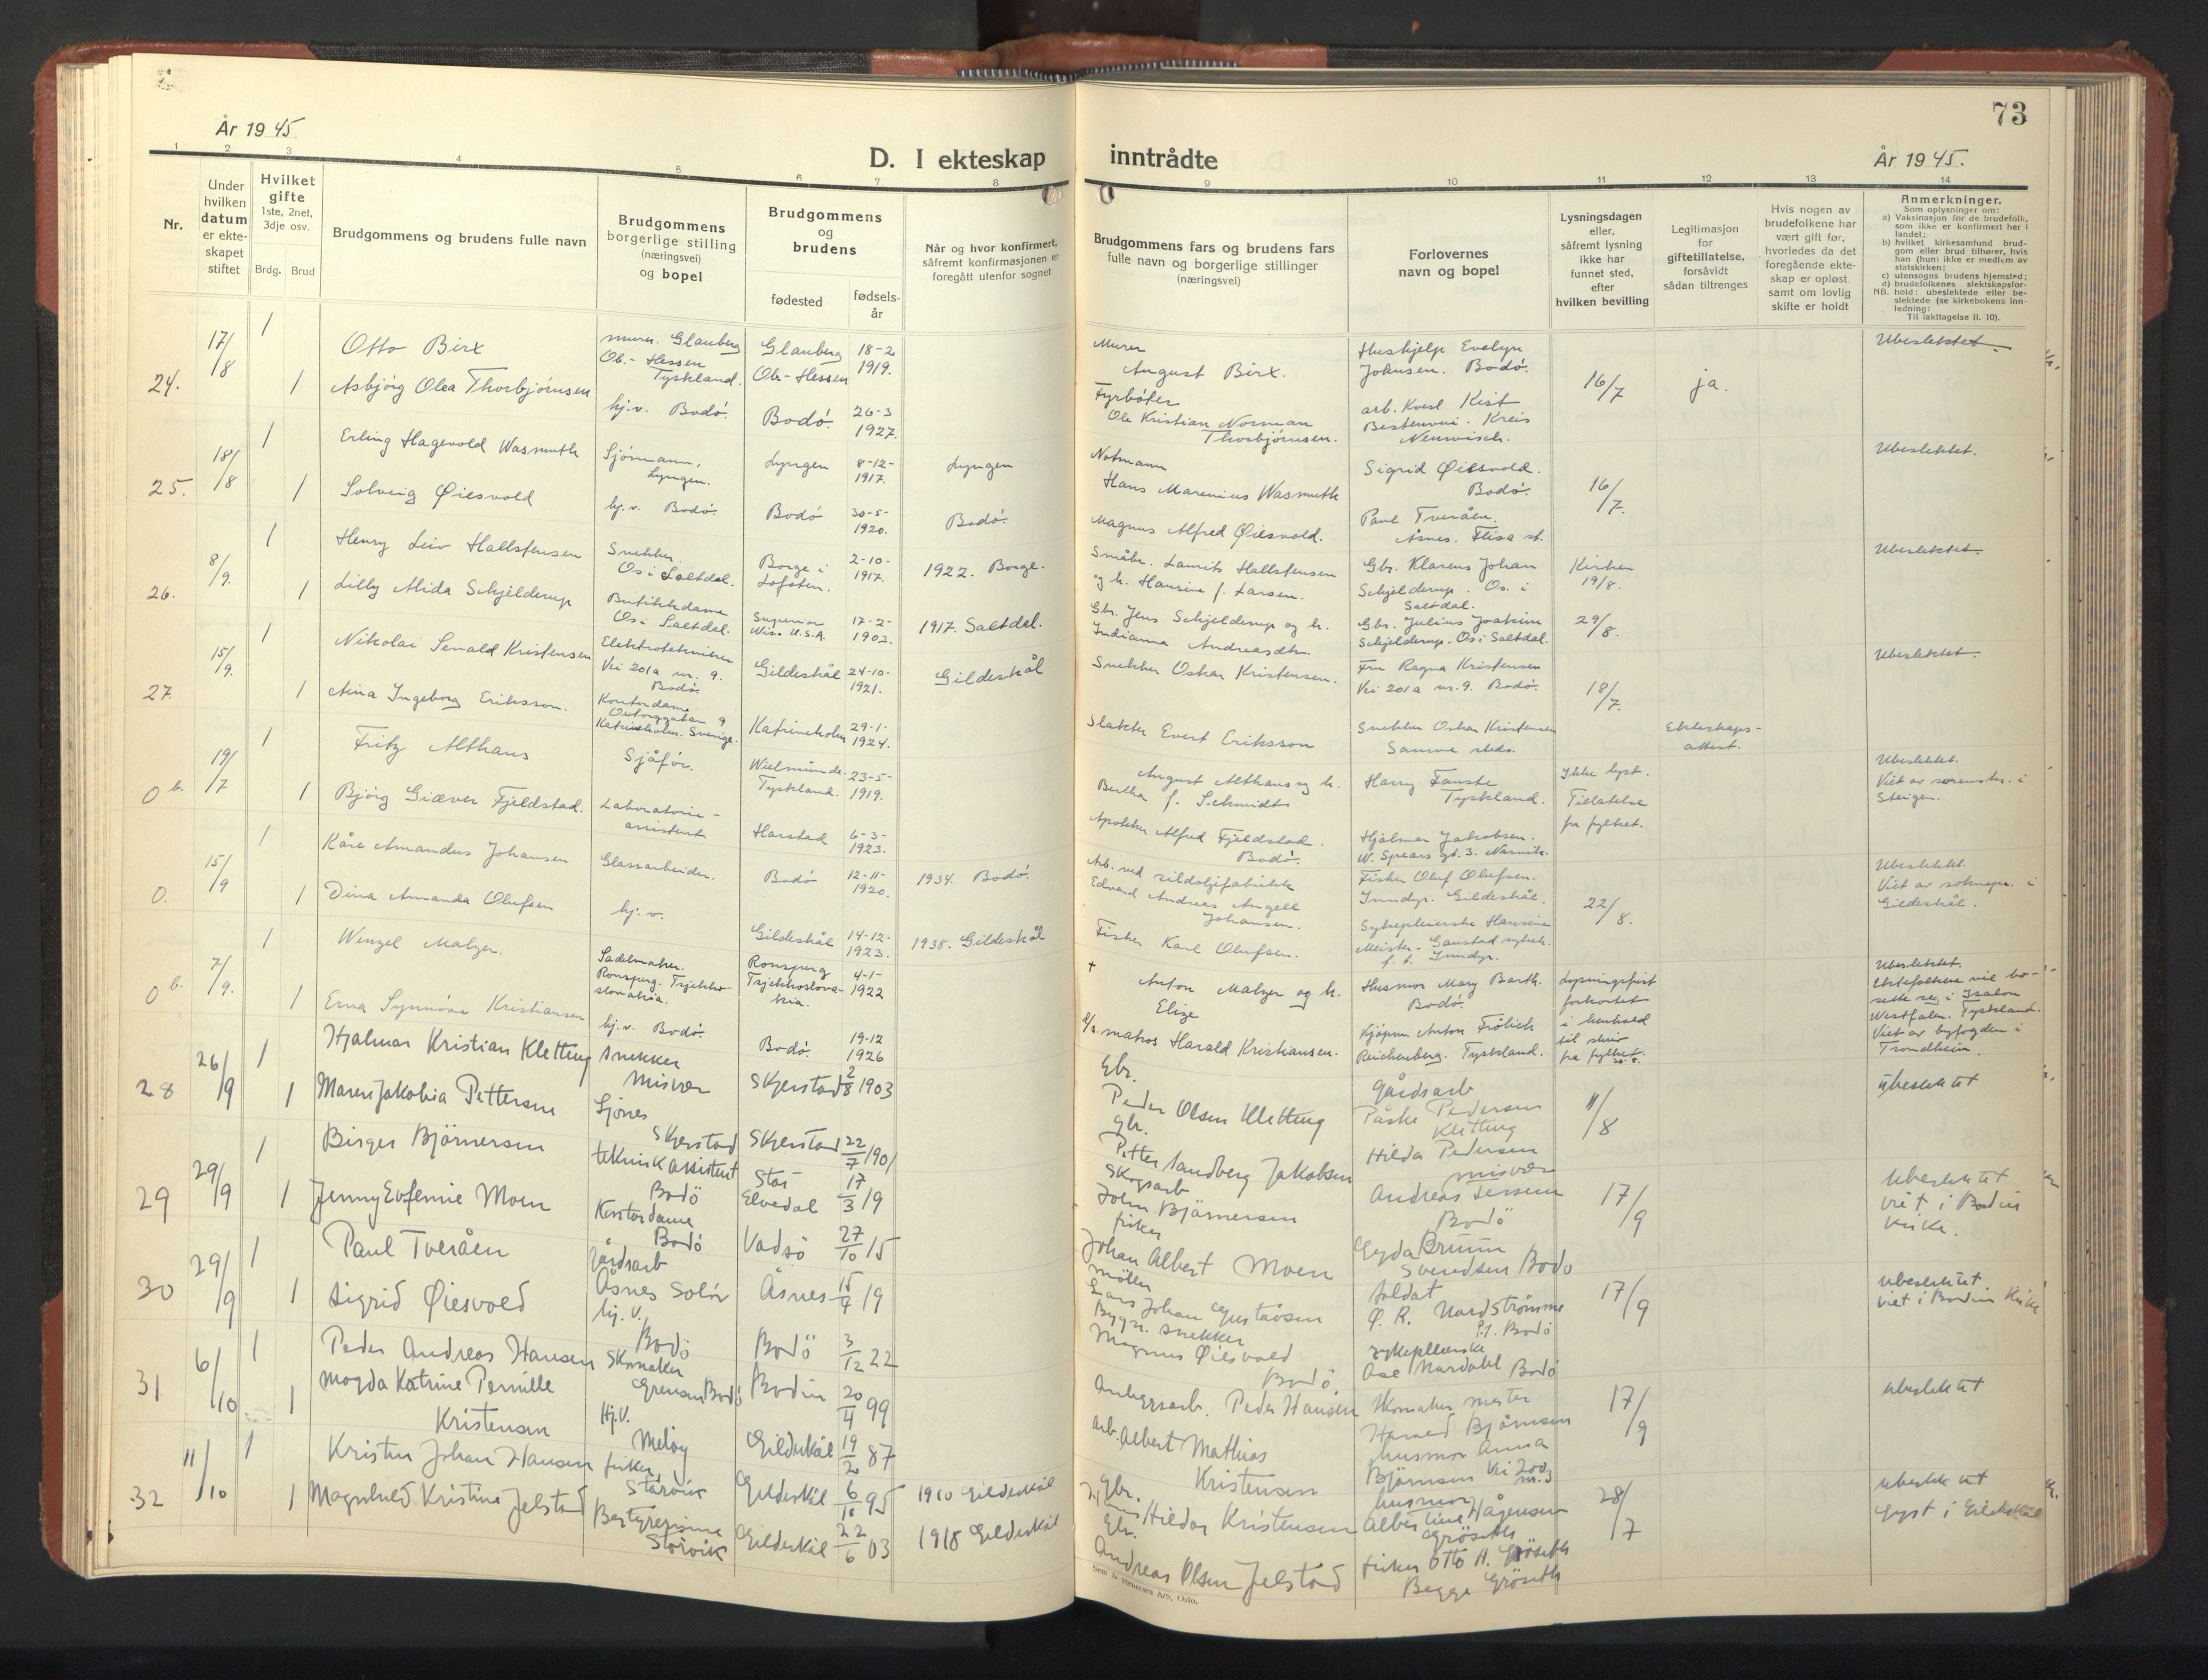 År 1945
D. I ekteskap
1 2 3 4 5 6 7 8
Nr.
Under hvilken datum er ekteskapet stiftet
Hvilket gifte
1ste, 2net, 3dje osv.
Brdg. Brud
Brudgommens og brudens fulle navn
Brudgommens borgerlige stilling (næringsvei) og bopel
Brudgommens og brudens
fødested
fødselsår
Når og hvor konfirmert, såfremt konfirmasjonen er foregått utenfor sognet
24. 17/8 1 Otto Birx murer. Glauberg Ob.-Hessen Tyskland. Glauberg Ob-Hessen 18-2 1919.
1 Asbjörg Olea Thorbjörnsen hj.v. Bodö. Bodö. 26-3 1927.
25. 18/8 1 Erling Hagevold Wasmuth Sjömann, Lyngen. Lyngen 8-12- 1917. Lyngen
1 Solveig Øiesvold hj.v. Bodö. Bodö 30-5- 1920. Bodö.
26. 8/9. 1 Henry Leiv Hallstensen Snekker. Os i Saltdal. Borge i Lofoten. 2-10- 1917. 1922. Borge.
1 Lilly Alida Schjelderup Butikkdame Os i Saltdal. Superior Wis. U.S.A. 17-2- 1903. 1917. Saltdal.
27. 15/9. 1 Nikolai Senald Kristensen Elektrotekniker Vei 201a nr. 9. Bodö. Gildeskål 24-10- 1921. Gildeskål
1 Aina Ingeborg Eriksson. Kontordame 9 Katrineholm. Sverige. Katrineholm 29-1- 1924.
0 b. 19/7 1 Fritz Althaus Sjåför. Tyskland. 23-5- 1919.
1 Björg Giæver Fjeldstad. Laboratorie-assistent Harstad 6-3- 1923.
0. 15/9 1 Kåre Amandus Johansen Glassarbeider. Bodö 12-11- 1920. 1934. Bodö.
1 Dina Amanda Olufsen hj. v. Gildeskål 14-12- 1923. 1938. Gildeskål
0 b. 7/9. 1 Wenzel Malzer. Sadelmaker. Ronsperg. Tsjekkoslovakia. Ronsperg Tsjekkoslovakia. 4-1- 1922
1 Erna Synnöve Kristiansen hj.v. Bodö. Bodö. 19-12 1926
28 26/9 1 Hjalmar Kristian Kletting snekker Misvær Skjerstad 2/8 1903
1 Maren Jakobia Pettersen Sjönes Skjerstad Skjerstad 22/7 1901
29 29/9 1 Birger Björnersen teknisk assistent Bodö Stor Elvedal 17/3 19
1 Jenny Eufemie Moen Kontordame Bodö Vadsö 27/10 15
30 29/9 1 Paul Tveråen gårdsarb Åsnes Solör Åsnes 15/9 19
1 Sigrid Øiesvold hj. v. Bodö Bodö 3/12 22
31 6/10 1 Peder Andreas Hansen Skomaker Grensen Bodö Bodin 20/4 99
1 Magda Katrine Pernille Kristensen Hj.V. Melöy Gildeskål 19/2 87
32 11/10 1 Kristen Johan Hansen fisker, Storvik Gildeskål 6/10 95 1910 Gildeskål
1 Magnhild Kristine Jelstad Bestyrerinne Storvik Gildeskål 22/6 03 1918 Gildeskål
73
inntrådte
År 1945.
9 10 11 12 13 14
Brudgommens fars og brudens fars fulle navn og borgerlige stillinger (næringsvei)
Forlovernes navn og bopel
Lysningsdagen eller, såfremt lysning ikke har funnet sted, efter hvilken bevilling
Legitimasjon for giftetillatelse, forsåvidt sådan tiltrenges
Hvis nogen av brudefolkene har vært gift før, hvorledes da det foregående ekteskap er opløst, samt om lovlig skifte er holdt
Anmerkninger.
Som oplysninger om:
a) Vaksinasjon for de brudefolk, som ikke er konfirmert her i landet;
b) hvilket kirkesamfund brudgom eller brud tilhører, hvis han (hun) ikke er medlem av statskirken;
c) utensogns brudens hjemsted;
d) brudefolkenes slektskapsforhold: ubeslektede eller beslektede (se kirkebokens innledning:
NB.
Til iakttagelse II. 10).
Murer August Birx. Hushjelp Evelyn Johnsen. Bodö. 16/7 ja. Ubeslektet.
Fyrböter Ole Kristian Norman Thorbjörnsen. arb. Karl Kist Kreis
Notmann Hans Marenius Wasmuth Sigrid Øiesvold. Bodö. 16/7. Ubeslektet.
Magnus Alfred Øiesvold. Paul Tveråen. Åsnes. Flisa st.
Småbr. Laurits Hallstensen og h. Hansine f. Larsen. Gbr. Klarens Johan Schjelderup. Os. i Saltdal. Kirken 19/8. Ubeslektet.
Gbr. Jens Schjelderup og h. Indianna Andreasdtr. Gbr. Julius Joakim Schjelderup. Os i Saltdal. 29/8.
Snekker Oskar Kristensen. Fru Ragna Kristensen Vei 201a nr. 9. Bodö. 18/7. Ubeslektet.
Slakter Evert Eriksson Snekker Oskar Kristensen Samme steds. Ekteskaps-attest.
August Althaus og h. Bertha f. Schmidts Harry Fauske Tyskland. Ikke lyst. Tillatelse fra fylket. Ubeslektet. Viet av sorenskr. i Steigen.
Apoteker Alfred Fjeldstad. Bodö. Hjalmar Jakobsen. W. Spears gt. 3. Narvik.
Arb. ved sildoljefabrikk Edvard Andreas Angell Johansen. Fisker Oluf Olufsen. Inndyr. Gildeskål. 22/8. Ubeslektet. Viet av sokneprs. i Gildeskål.
Fisker Karl Olufsen. Sykepleierske Hansine Meister - Gaustad sykeh. f. t. Inndyr.
† Anton Malzer og h. Elize Husmor Mary Barth. Bodö. Lysningsfrist forkortet i henhold til skriv fra fylket. Ubeslektet. Ektefolkene vil bosette seg i Westfalen. Tyskland. Viet av byfogden i Trondheim.
matros Harald Kristiansen. Kjöpm. Anton Frölich Reichenberg. Tyskland.
Gbr. Peder Olsen Kletting gårdsarb Påske Pedersen Kletting 11/8 ubeslektet
Gbr. Petter Sandberg Jakobsen Hilda Pedersen Misvær
Skogsarb John Björnersen Andreas Bodö 17/9 ubeslektet viet i Bodin kirke.
fisker Johan Albert Moen Gyda Bruun Svendsen Bodö
möller Lars Johan Gustavsen Soldat Ø. R. Nordstrømme Bodö 17/9 ubeslektet. viet i Bodin kirke
Bygn. snekker Magnus Øiesvold Bodö. sykepleierske Åse Nordahl Bodö
Anleggsarb. Peder Hansen Skomaker mester Harald Björnsen 17/9 ubeslektet
arb. Albert Mathias Kristensen husmor Anna Björnsen Vei 200 nr. 3
Gbr. Hildor Kristensen husmor Albertine Hågensen Gröseth 28/7 ubeslektet Lyst i Gildeskål
Gbr. Andreas Olsen Jelstad fisker Otto H. Gröseth Begge Gröseth
Sem & Stenersen A/S, Oslo.